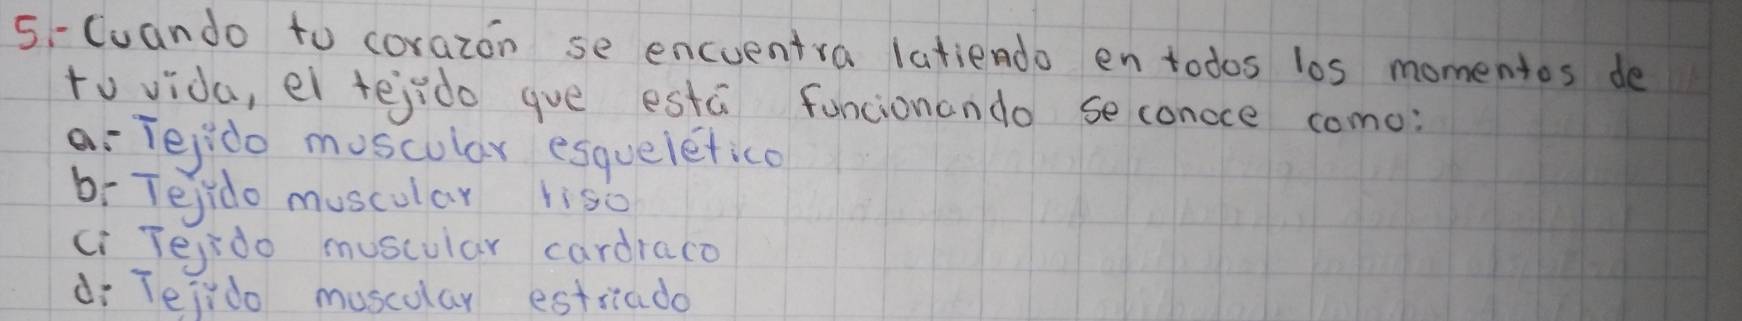 5.- Cuando tu corazón se encuentra latiendo en todos los momentos de
tu vida, el tejido que está funcionando se conoce como:
a.- Tejido muscular esquelético
b.- Tejido muscular liso
c.- Tejido muscular cardiaco
d.- Tejido muscular estriado